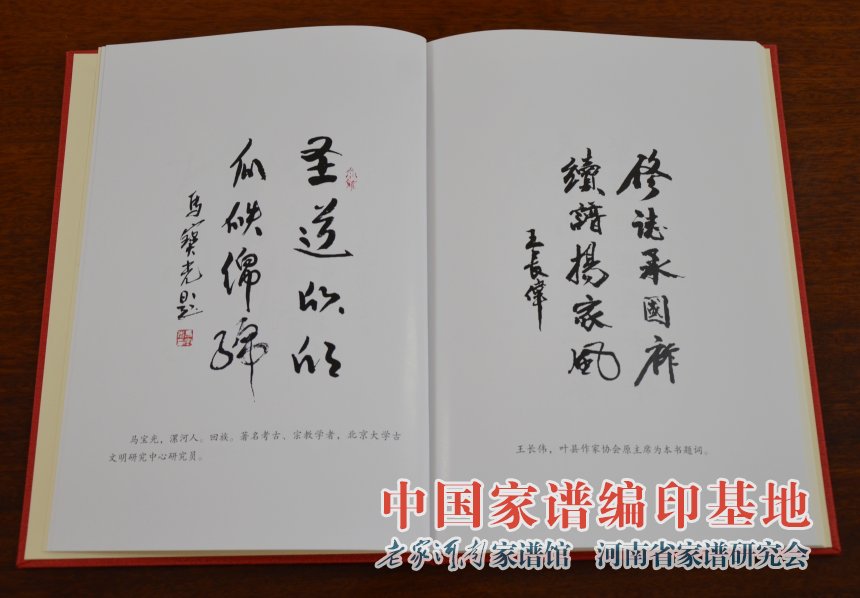 圣道
瓜瓞绵绵
馬寶光题
马宝光，漯河人。回族。著名考古、宗教学者，北京大学古
文明研究中心研究员。
修誌承國祚
續譜揚家風
王長偉
王长伟，叶县作家协会原主席为本书题词。
中国家谱编印基地
老家河南家谱馆 河南省家谱研究会